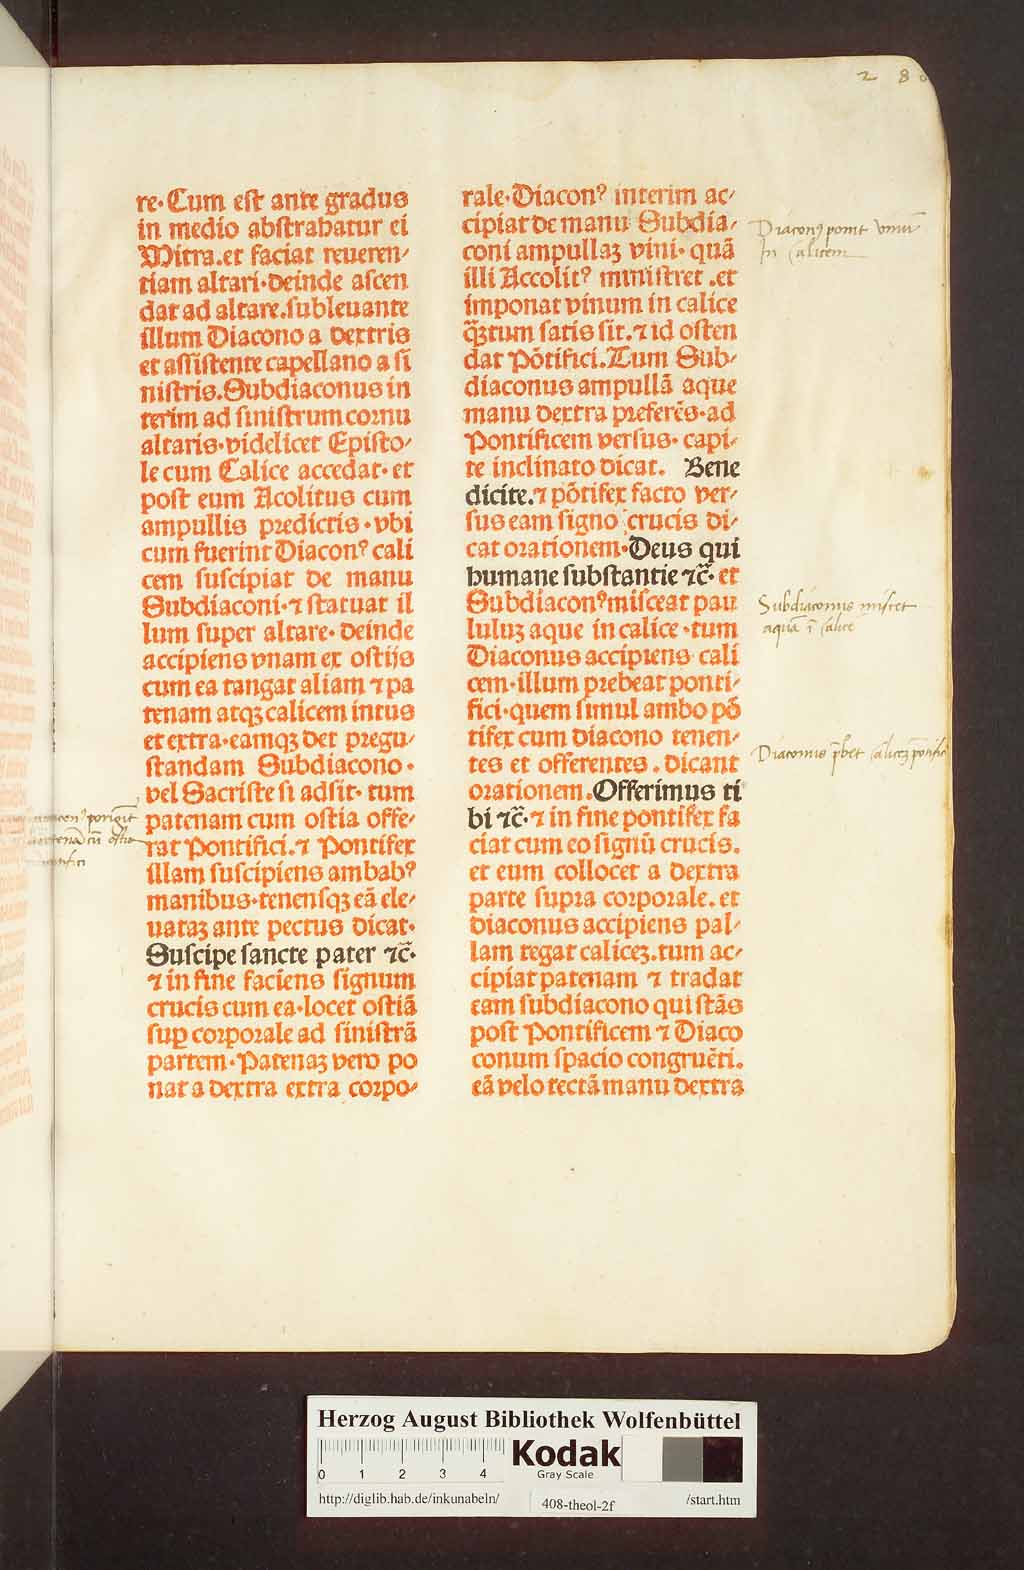 2 8
re. Cum est ante gradus
in medio abstrahatur ei
Mitra.et faciat reueren-
tiam altari.deinde ascen
dat ad altare.subleuante
illum Diacono a dextris
et assistente capellano a si
nistris.Subdiaconus in
terim ad sinistrum cornu
altaris.videlicet Episto-
le cum Calice accedat.et
post eum Acolitus cum
ampullis predictis.vbi
cum fuerint Diaconꝰ cali
cem suscipiat de manu
Subdiaconi.⁊ statuat il
lum super altare.deinde
accipiens vnam ex ostijs
cum ea tangat aliam ⁊ pa
tenam atqꝫ calicem intus
et extra.eamqꝫ det pregu-
standam Subdiacono.
vel Sacriste si adsit.tum
patenam cum ostia offe-
rat Pontifici.⁊ Pontifex
illam suscipiens ambabꝰ
manibus.tenensqꝫ eā ele-
uataꝫ ante pectus dicat.
Suscipe sancte pater ⁊c̄.
⁊ in fine faciens signum
crucis cum ea.locet ostiā
suꝑ corporale ad sinistrā
partem.Patenaꝫ vero po
nat a dextra extra corpo-
rale.Diaconꝰ interim ac-
cipiat de manu Subdia-
coni ampullaꝫ vini.quā
illi Accolitꝰ ministret.et
imponat vinum in calice
q̄ꝫtum satis sit.⁊ id osten
dat Pōtifici.Tum Sub-
diaconus ampullā aque
manu dextra preferēs.ad
Pontificem versus.capi-
te inclinato dicat. Bene
dicite.⁊ pōtifex facto ver-
sus eam signo crucis di-
cat orationem.Deus qui
humane substantie ⁊c̄.et
Subdiaconꝰ misceat pau
luluꝫ aque in calice.tum
Diaconus accipiens cali
cem.illum prebeat ponti-
fici.quem simul ambo pō
tifex cum diacono tenen-
tes et offerentes.dicant
orationem.Offerimus ti
bi ⁊c̄.⁊ in fine pontifex fa
ciat cum eo signū crucis.
et eum collocet a dextra
parte supra corporale.et
diaconus accipiens pal-
lam tegat caliceꝫ.tum ac-
cipiat patenam ⁊ tradat
eam subdiacono qui stās
post Pontificem ⁊ Diaco
conum spacio congruēti.
eā velo tectā manu dextra
Diaconꝰ ponit vinū
In Calicem
Subdiaconus miscet
aquā ī Calice
Diaconus p̄bet Caliceꝫ
porigit
cū ostia
Herzog August Bibliothek Wolfenbüttel
0 1 2 3 4
Kodak
Gray Scale
http://diglib.hab.de/inkunabeln/ 408-theol-2f /start.htm